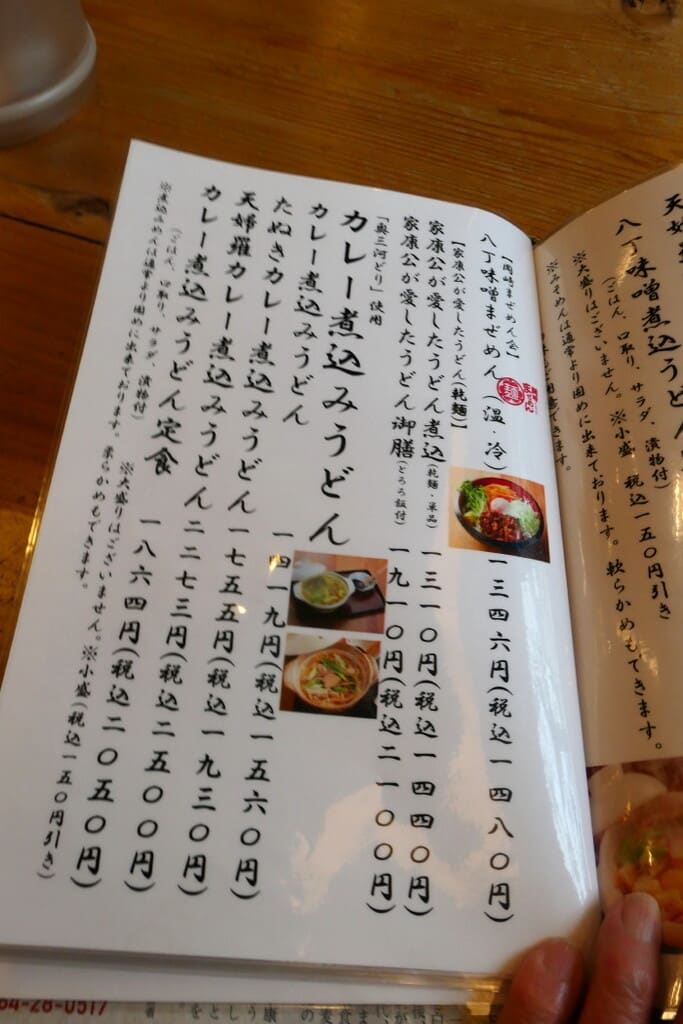 天婦羅
八丁味噌煮込うどん
(ごはん、口取り、サラダ、漬物付)
※大盛りはございません。※小盛 税込一五〇円引き
※みそめんは通常より固めに出来ております。軟らかめもできます。
【岡崎まぜめん会】
八丁味噌まぜめん(温・冷) 一三四六円(税込一四八〇円)
【家康公が愛したうどん(乾麺)】
家康公が愛したうどん煮込(乾麺・単品) 一三一〇円(税込一四四〇円)
家康公が愛したうどん御膳(とろろ飯付) 一九一〇円(税込二一〇〇円)
「奥三河どり」使用
カレー煮込みうどん
カレー煮込みうどん 一四一九円(税込一五六〇円)
たぬきカレー煮込みうどん 一七五五円(税込一九三〇円)
天婦羅カレー煮込みうどん 二二七三円(税込二五〇〇円)
カレー煮込みうどん定食 一八六四円(税込二〇五〇円)
(ごはん、口取り、サラダ、漬物付) ※大盛りはございません。※小盛(税込一五〇円引き)
※煮込みめんは通常より固めに出来ております。柔らかめもできます。
64-28-0517